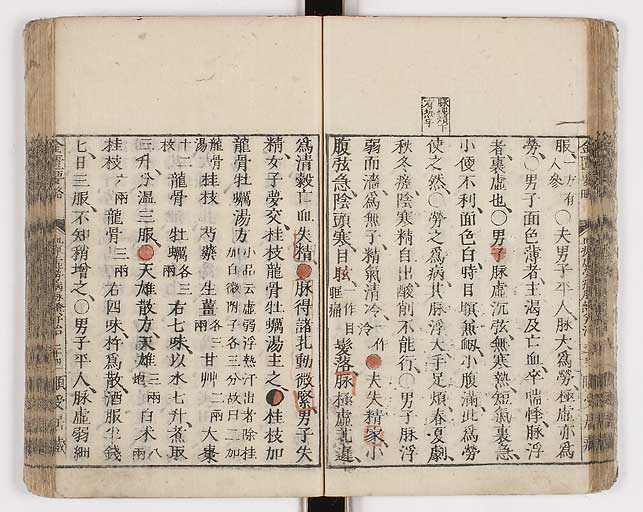 服一方有人參○夫男子平人脉大爲勞極虚亦爲
勞○男子面色薄者主渴及亡血卒喘悸脉浮
者裏虚也○男子脉虚沉弦無寒熱短氣裏急
小便不利面色白時目瞑兼衂小腹滿此爲勞
使之然○勞之爲病其脉浮大手足煩春夏劇
秋冬瘥陰寒精自出酸削不能行○男子脉浮
弱而濇爲無子精氣清冷一作冷○夫失精家小
腹弦急陰頭寒目眩一作目眶痛髮落脉極虚芤遲
爲清穀亡血失精脉得諸芤動微緊男子失
精女子夢交桂枝龍骨牡蠣湯主之桂枝加
龍骨牡蠣湯方小品云虚弱浮熱汗出者除桂加白薇附子各三分故曰二加
龍骨湯桂枝 芍藥 生薑各三兩甘艸二兩大棗
十二枚龍骨 牡蠣各三兩右七味以水七升煮取
三升分温三服天雄散方天雄三兩炮白朮八兩
桂枝六兩龍骨三兩右四味杵爲散酒服半錢
七日三服不知稍增之○男子平人脉虚弱細
金匱要略